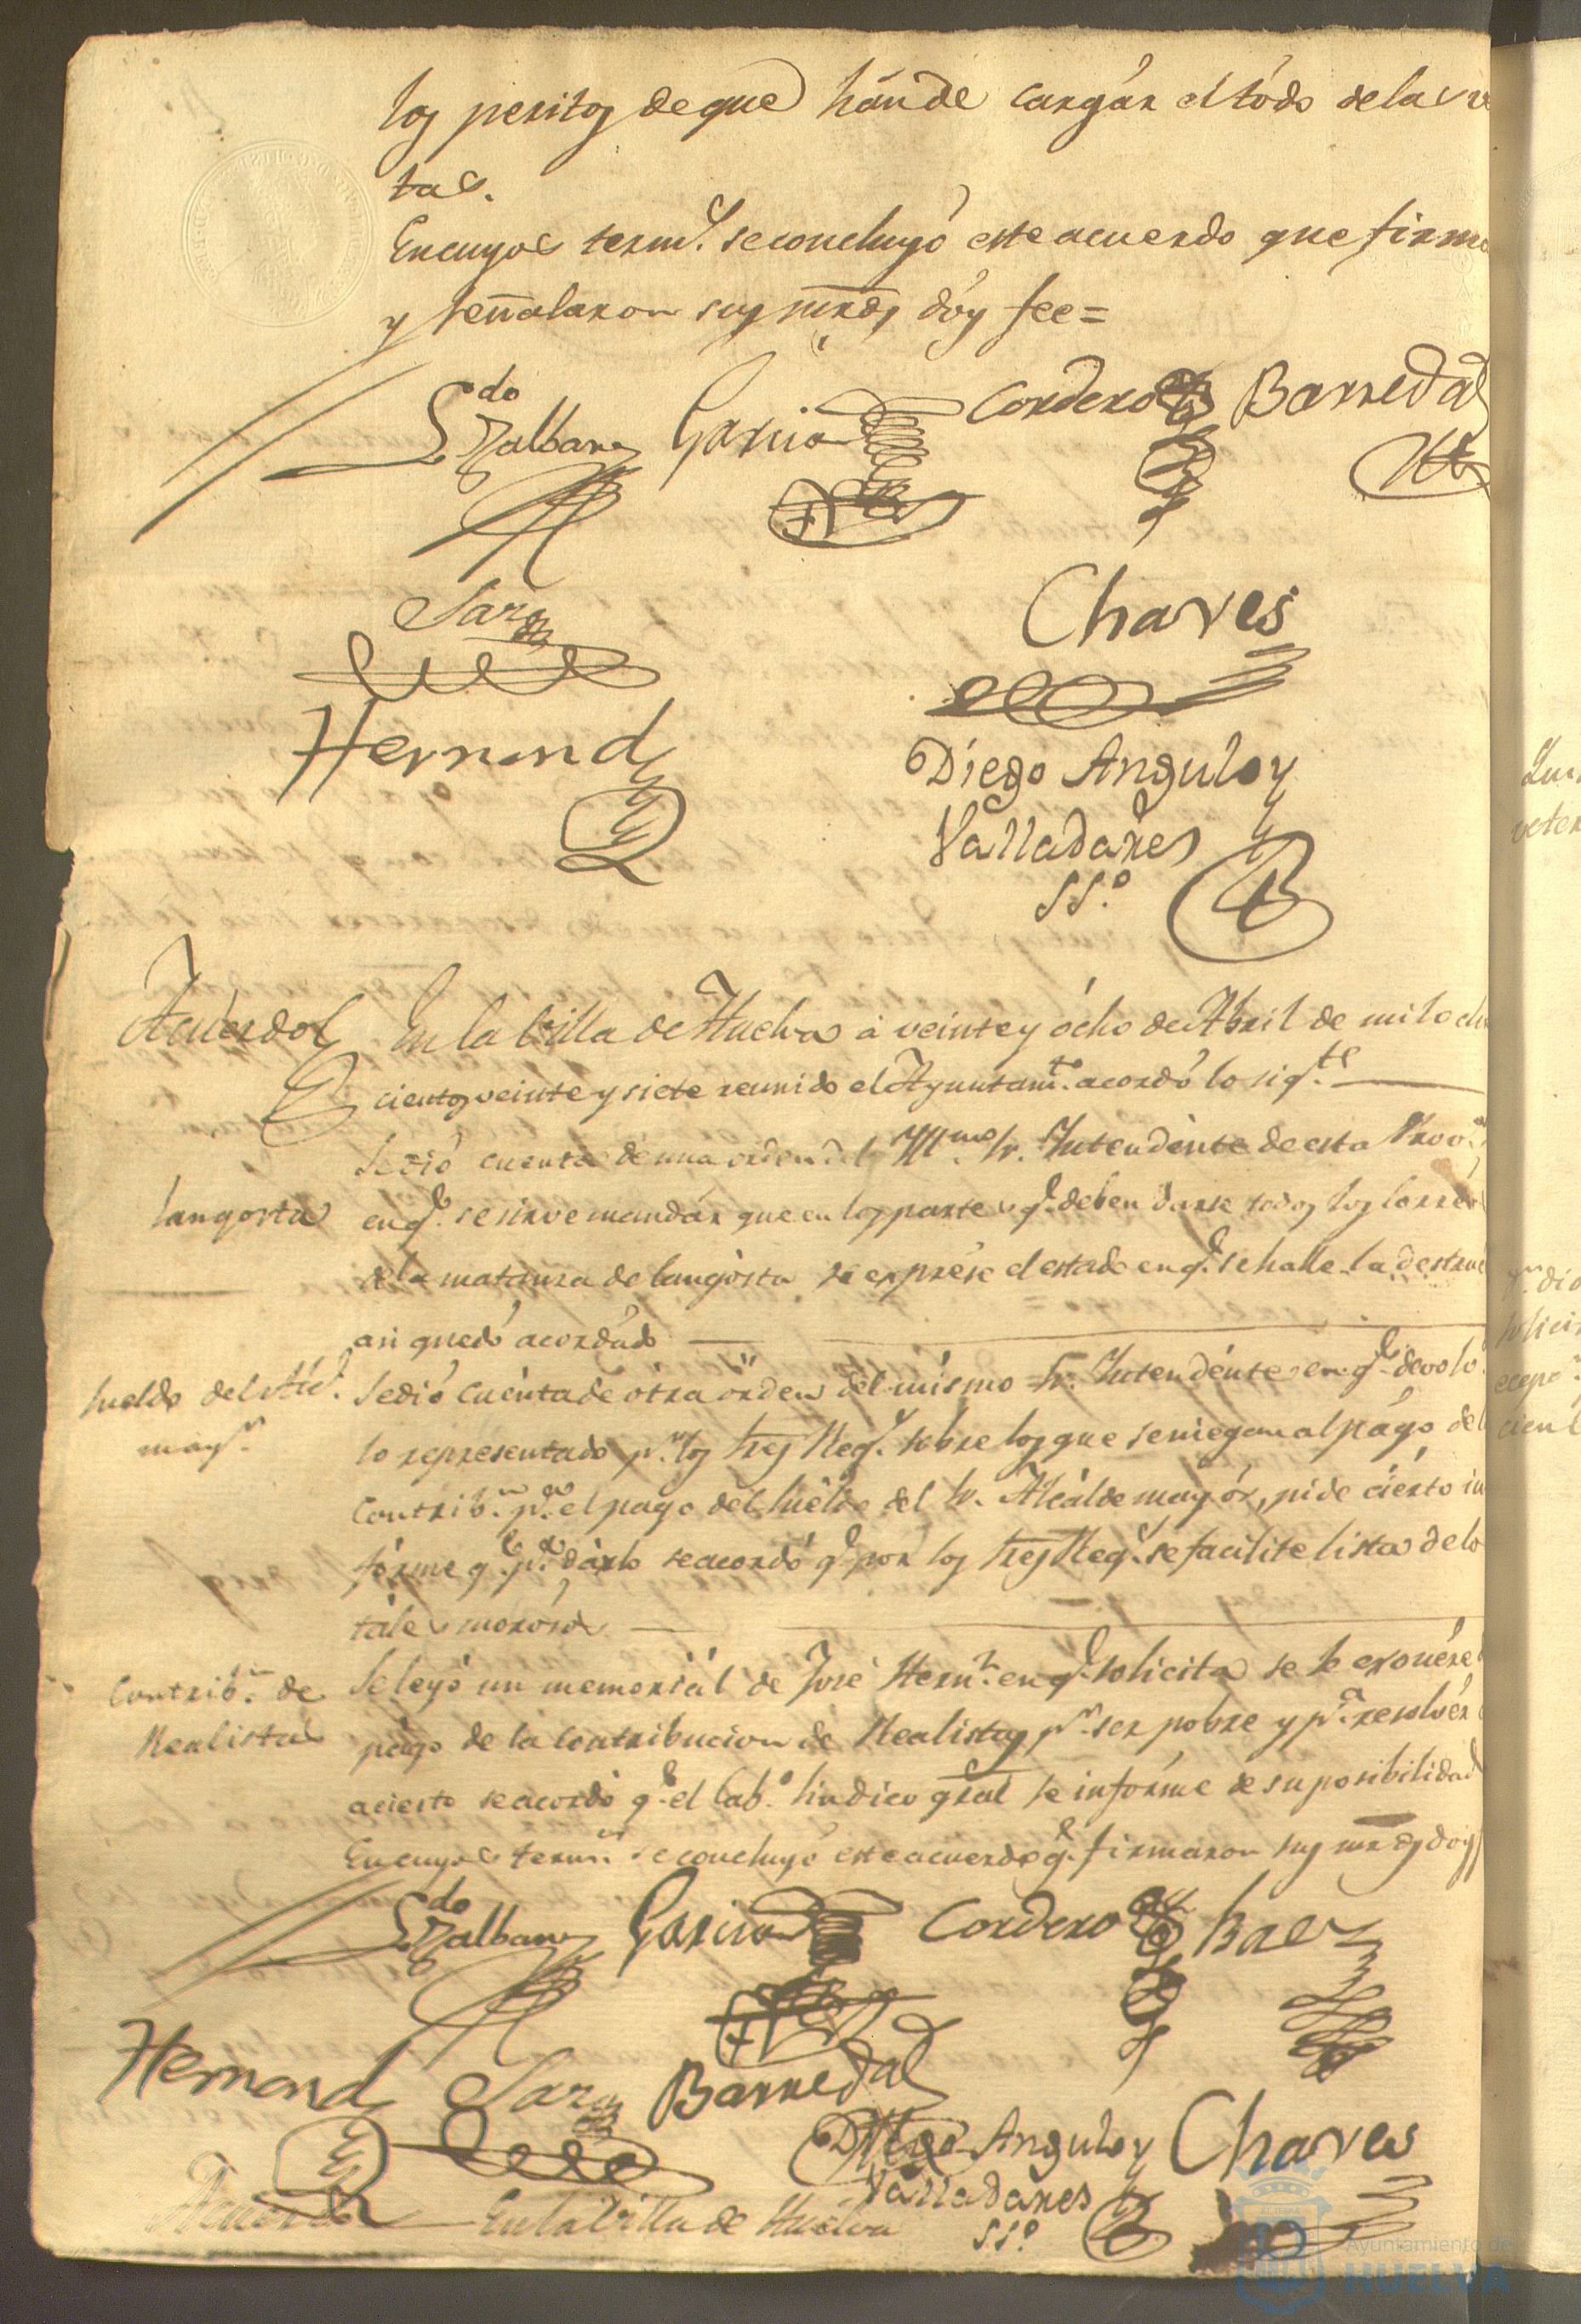 los peritos de que hán de cargár el tódo de las
tas.
En cuyos term.s se concluyó este acuerdo que firma
y señalaron sus mrds, dóy fee=
L.do Dalbane Garcia Cordero Barreda
Jara Chaves
Hernand
Diego Angulo y
Valladares
SS.o
Acuerdo En la Villa de Huelva á veinte y ócho de Abril de mil ocho
cientos veinte y siete reunido el Ayuntam.to acordó lo sig.te
Se dió cuenta de una orden del Yll.mo Sr. Yntendénte de esta Prov.a
langosta en q.e se sirve mandár que en los partes q.e deben darse todos los correos
de la matanza de langósta se exprése el estado en q.e se halle la destruc
asi quedó acordádo
Sueldo del Alc.e
may.r
Se dió cuénta de ótra orden del mismo Sr. Yntendénte en q.e devolv.
lo representado p.r los Sres Reg.s sobre los que se niegan al págo del
Contrib.n p.a el pago del Suéldo del Sr. Alcálde mayór, pide ciérto in
fórme q.e p.a dárlo se acordó q.e por los Sres Reg.s se facilite lista de lo
tales morósos
Contrib.n de
Realistas
Se leyó un memoriál de José Hern.z en q.e solicita se le exonére
págo de la Contribucion de Realistas p.r ser pobre y p.a resolvér
acierto se acordó q.e el Cab.o Sindico gral se infórme de su posibilidad
En cuyos term.s se concluyó este acuerdo q.e firmaron sus mrds doy
L.do Dalbane Garcia Cordero Baez
Hernand Jara Barreda
Diego Angulo y Chaves
Valladares
SS.o
Acuerdo En la Villa de Huelva
Ayuntamiento de
HUELVA